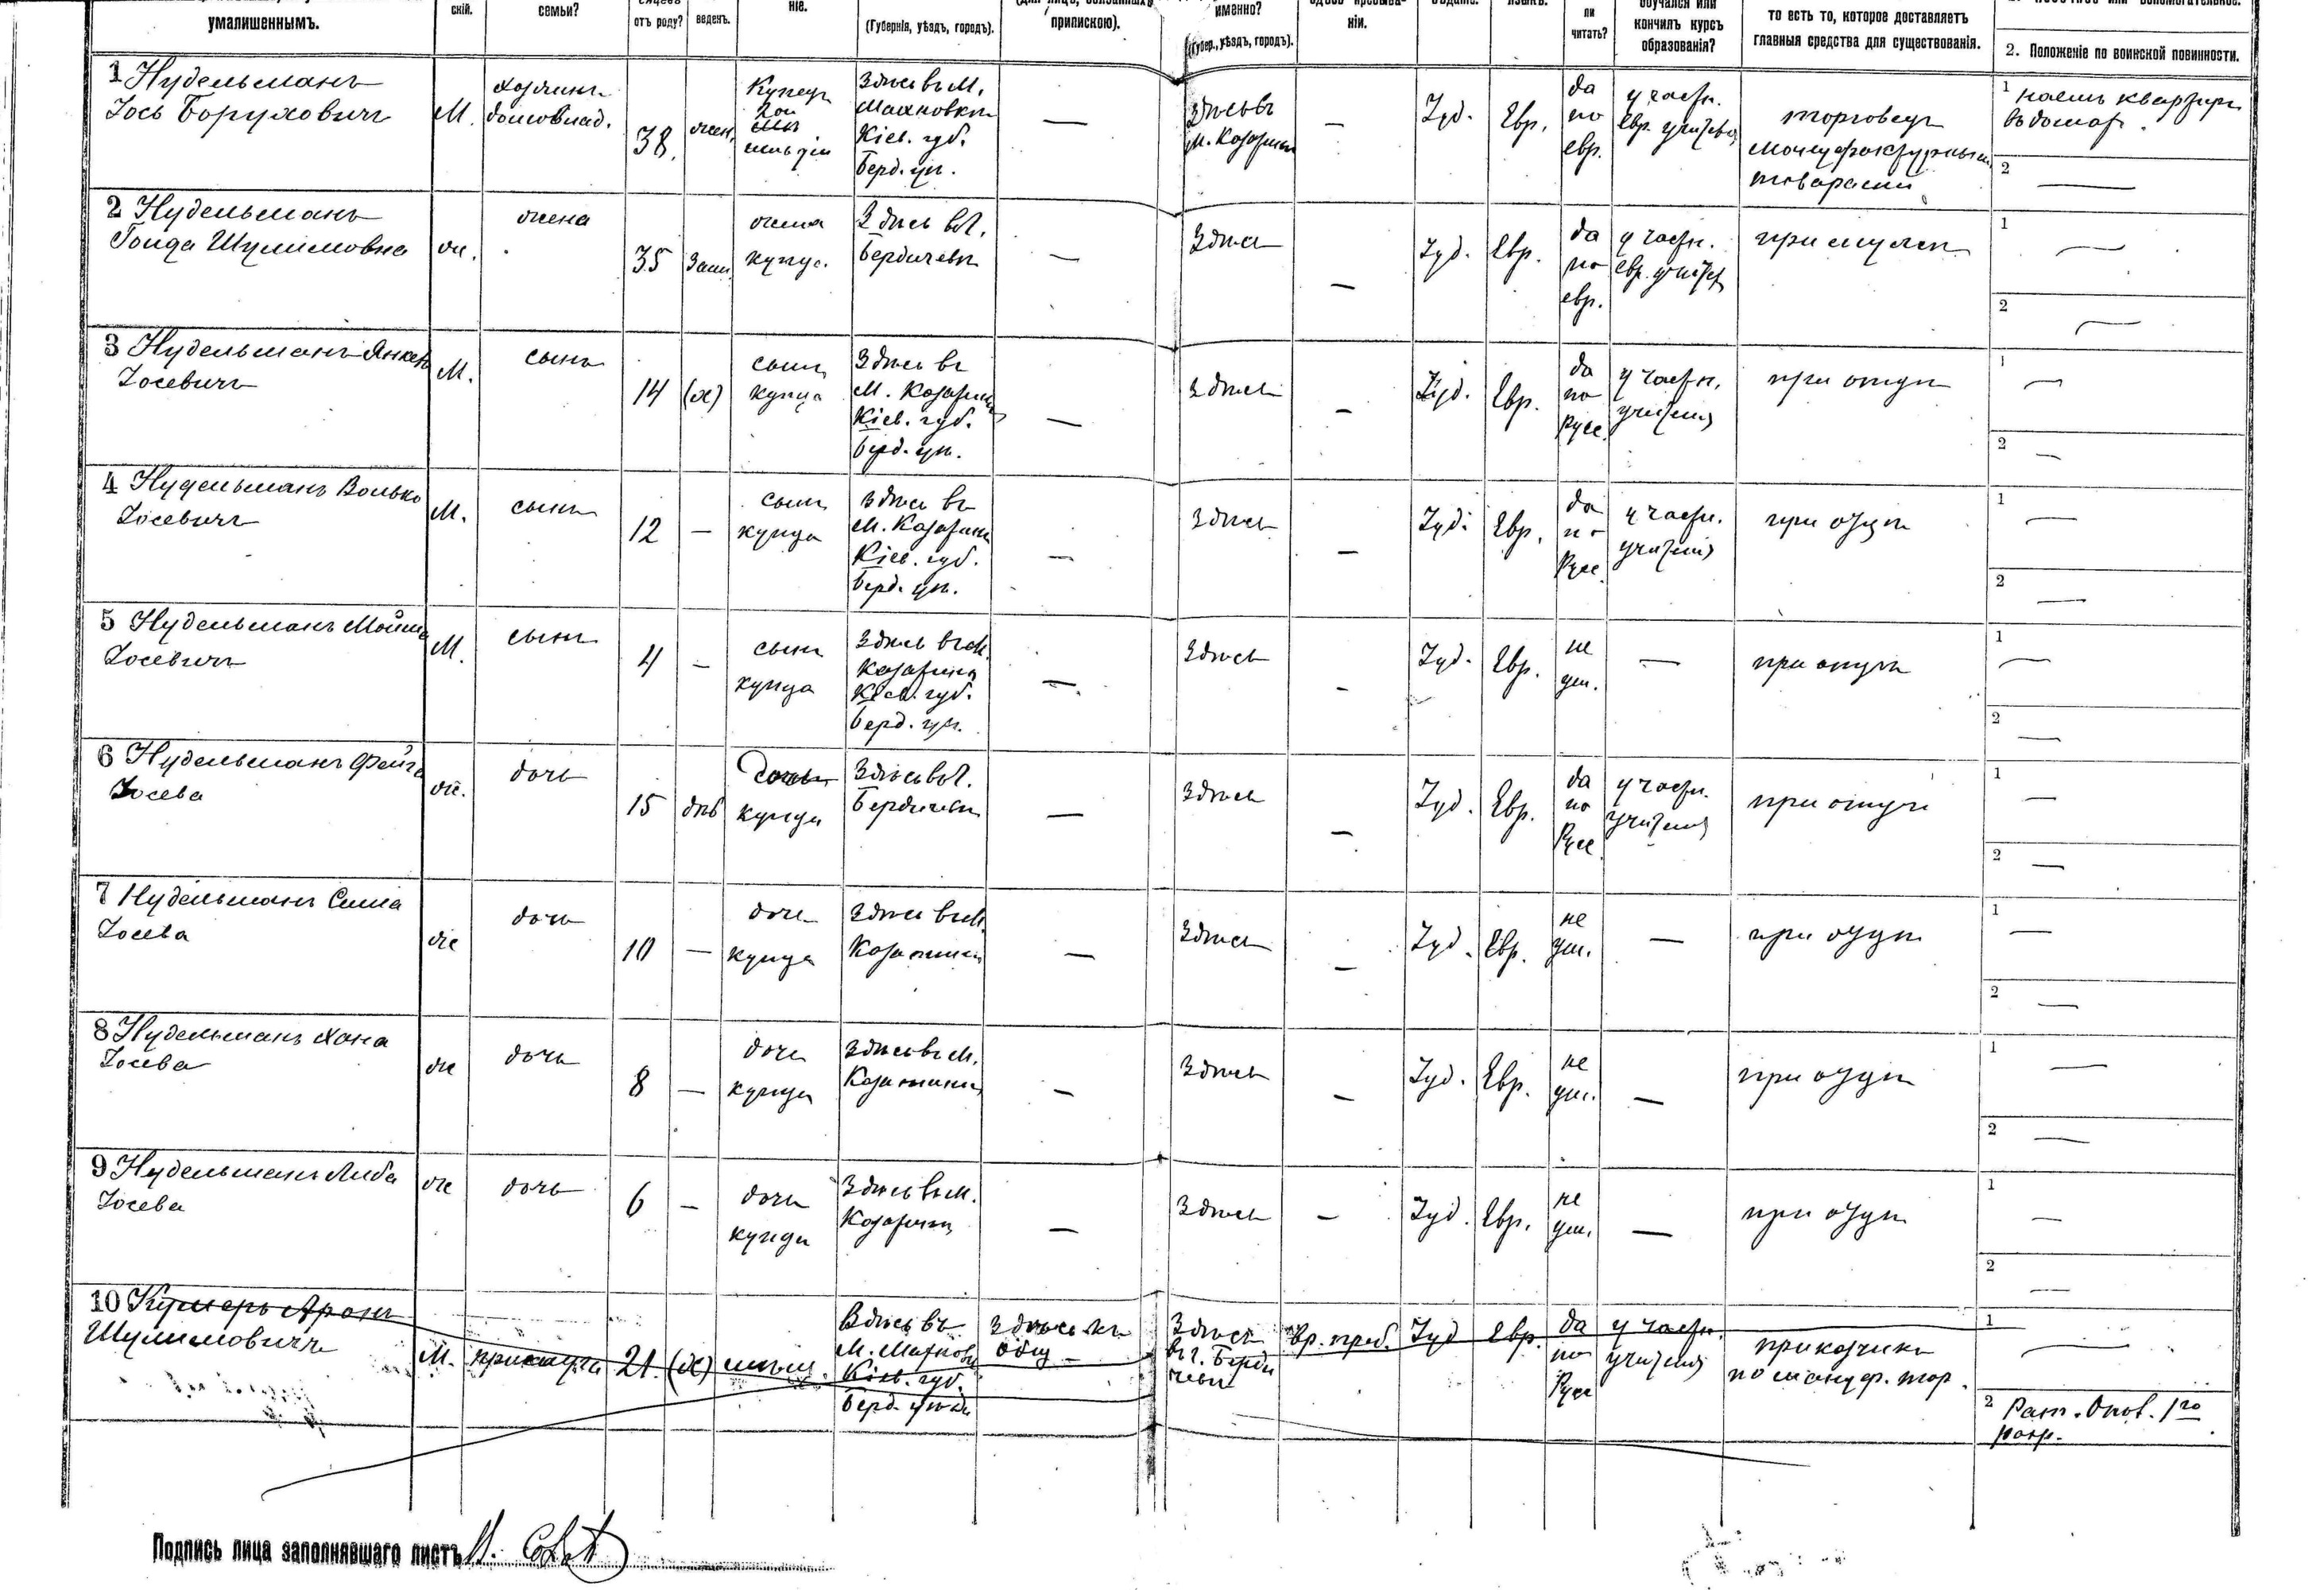 умалишеннымъ.
скiй.
семьи?
отъ роду?
веденъ.
нiе.
(Губернiя, уѣздъ, городъ).
припискою).
именно?
(Губер., уѣздъ, городъ).
нiи.
ли
читать?
обучался или
кончилъ курсъ
образованiя?
то есть то, которое доставляетъ
главныя средства для существованiя.
2. Положенiе по воинской повинности.
1 Нудельманъ
Iось Боруховичъ
М.
хозяинъ
домовлад.
38.
жен.
Купец
Здѣсь въ М.
Махновки
Кiев. губ.
Берд. уѣ.
—
здѣсь въ
м. Козатин
—
Iуд.
Евр.
да
по
евр.
у частн.
евр. учител
торговец
мануфактурными
товарами
1 наемъ квартиръ
въ домах.
2 —
2 Нудельманъ
Шулимовна
ж.
жена
35
Зам.
жена
купца.
Здѣсь в г.
Бердичевъ
—
Здѣсь
—
Iуд.
Евр.
да
по
евр.
у частн.
евр. учител
при мужѣ
1 —
2 —
3 Нудельманъ Янкель
Iосевичъ
М.
сынъ
14
(х)
сынъ
купца
Здѣсь въ
М. Козатин
Кiев. губ.
берд. уѣ.
—
Здѣсь
—
Iуд.
Евр.
да
по
Русс.
у частн.
учителя
при отцѣ
1 —
2 —
4 Нудельманъ Волько
Iосевичъ
М.
сынъ
12
—
сынъ
купца
здѣсь въ
М. Козатин
Кiев. губ.
берд. уѣ.
—
Здѣсь
—
Iуд.
Евр.
да
по
Русс.
у частн.
учителя
при отцѣ
1 —
2 —
5 Нудельманъ Мойше
Iосевичъ
М.
сынъ
4
—
сынъ
купца
Здѣсь въ М.
Козатин
Кiев. губ.
берд. уѣ.
—
Здѣсь
—
Iуд.
Евр.
не
ум.
—
при отцѣ
1 —
2 —
6 Нудельманъ Фейга
Iосева
ж.
дочь
15
дѣв
дочь
купца
Здѣсь в г.
Бердичевъ
—
Здѣсь
—
Iуд.
Евр.
да
по
Русс.
у частн.
учителя
при отцѣ
1 —
2 —
7 Нудельманъ Сима
Iосева
ж
дочь
10
—
дочь
купца
Здѣсь въ М.
Козатин
—
Здѣсь
—
Iуд.
Евр.
не
ум.
—
при отцѣ
1 —
2 —
8 Нудельманъ Хана
Iосева
ж
дочь
8
—
дочь
купца
Здѣсь въ М.
Козатин
—
Здѣсь
—
Iуд.
Евр.
не
ум.
—
при отцѣ
1 —
2 —
9 Нудельманъ Либа
Iосева
ж
дочь
6
—
дочь
купца
Здѣсь въ М.
Козатин
—
Здѣсь
—
Iуд.
Евр.
не
ум.
—
при отцѣ
1 —
2 —
10 Аронъ
Шулимовичъ
М.
прислуга
21.
(х)
мѣщ.
Здѣсь въ
М. Махнов
Кiев. губ.
Берд. уѣзд
Здѣсь къ
общ
Здѣсь
въ г. Берди
чевъ
вр. преб.
Iуд
Евр.
да
по
Русс
у частн.
учителя
приказчикъ
по мануф. тор.
1 —
2 Рат. Опол. 1го
разр.
Подпись лица заполнявшаго листъ